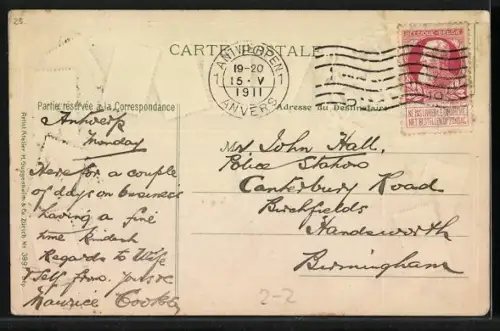 25.
CARTE POSTALE
ANTWERPEN
1 19-20 1
15-V
1911
ANVERS
BELGIQUE-BELGIË
NE PAS LIVRER LE DIMANCHE
NIET BESTELLEN OP ZONDAG
Partie réservée à la Correspondance
Adresse du Destinataire
Antwerp
Monday
Here for a couple
of days on business
having a fine
time Kindest
Regards to Wife
& Self from yours
Maurice
Mr John Hall.
Police Station
Canterbury Road
Birchfields
Handsworth
Birmingham
2-2
H. Guggenheim & Co. Zürich